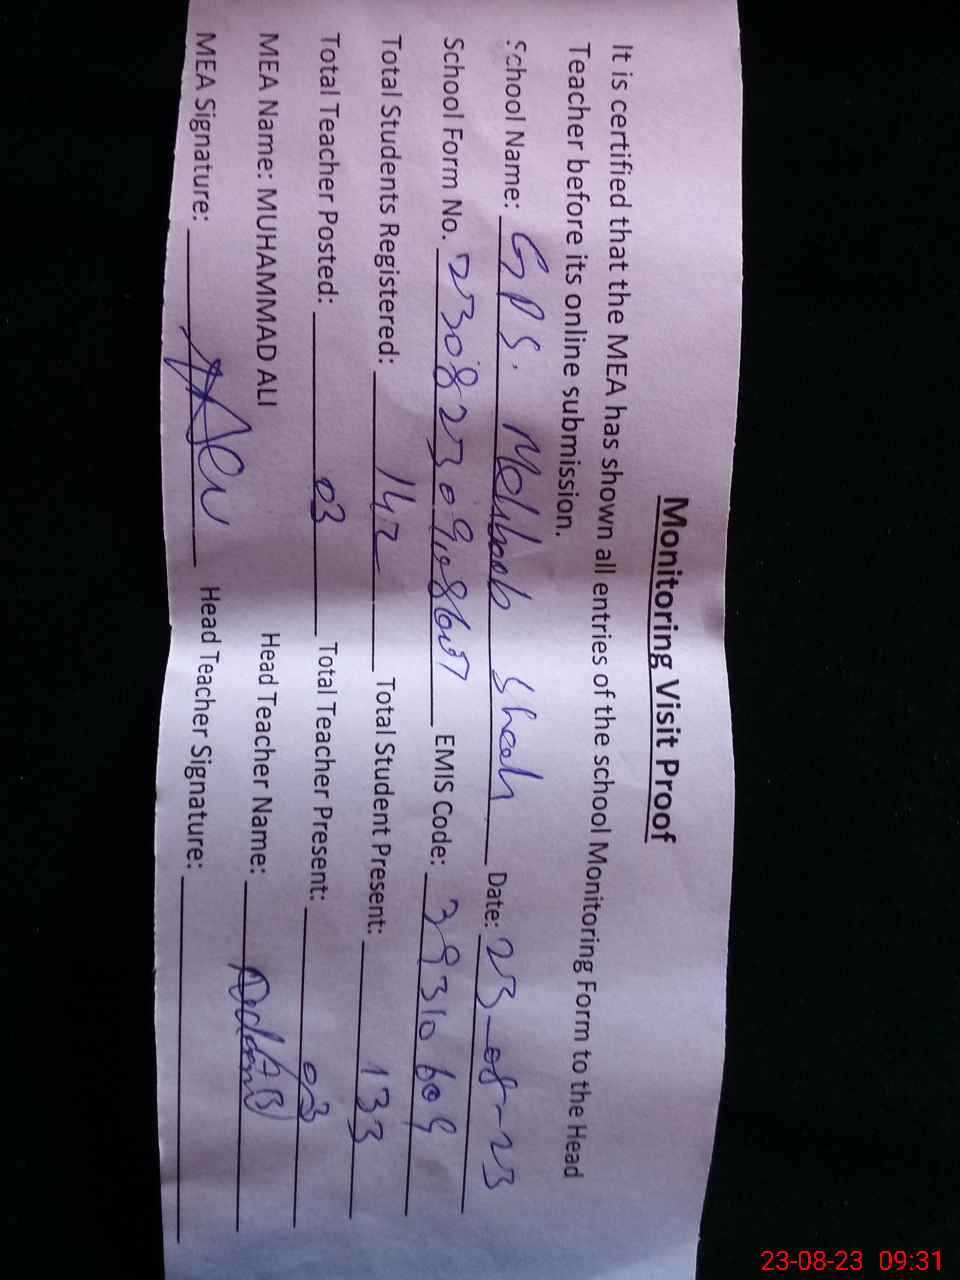 Monitoring Visit Proof
It is certified that the MEA has shown all entries of the school Monitoring Form to the Head
Teacher before its online submission.
School Name: GPS. Mehboob Shah Date: 23-08-23
School Form No. EMIS Code: 39310609
Total Students Registered: 142 Total Student Present: 133
Total Teacher Posted: 03 Total Teacher Present: 03
MEA Name: MUHAMMAD ALI Head Teacher Name:
MEA Signature: Head Teacher Signature:
23-08-23 09:31